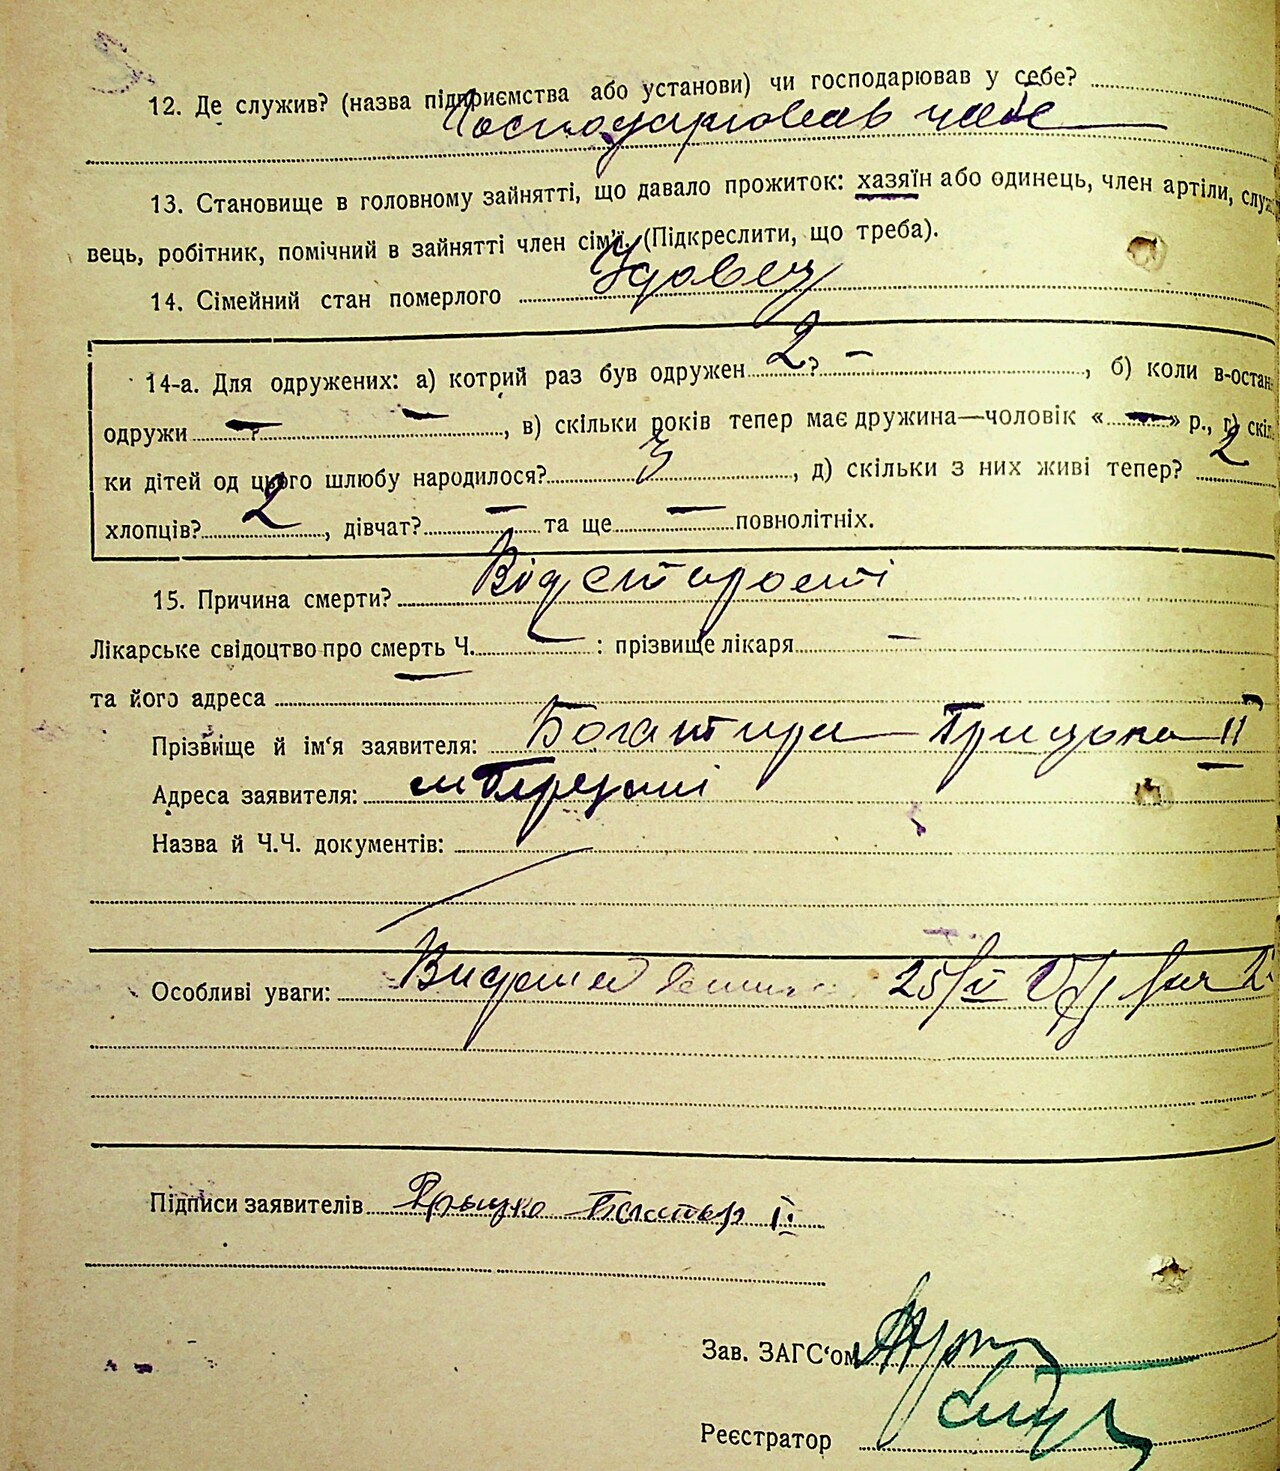 12. Де служив? (назва підприємства або установи) чи господарював у себе?
Господарював
13. Становище в головному зайнятті, що давало прожиток: хазяїн або одинець, член артіли, служ
вець, робітник, помічний в зайнятті член сім'ї. (Підкреслити, що треба).
14. Сімейний стан померлого Удовец
14-а. Для одружених: а) котрий раз був одружен 2? —, б) коли в-остан
одружи — ? —, в) скільки років тепер має дружина—чоловік « — » р., г) скіл
ки дітей од цього шлюбу народилося? 3, д) скільки з них живі тепер? 2
хлопців? 2, дівчат? — та ще — повнолітніх.
15. Причина смерти? Від старості
Лікарське свідоцтво про смерть Ч. — : прізвище лікаря —
та його адреса —
Прізвище й ім'я заявителя: Богатира Грицька II
Адреса заявителя: м Березані
Назва й Ч.Ч. документів:
Особливі уваги: 25/V
Підписи заявителів Грыцко Богатыр II
Зав. ЗАГС'ом
Реєстратор